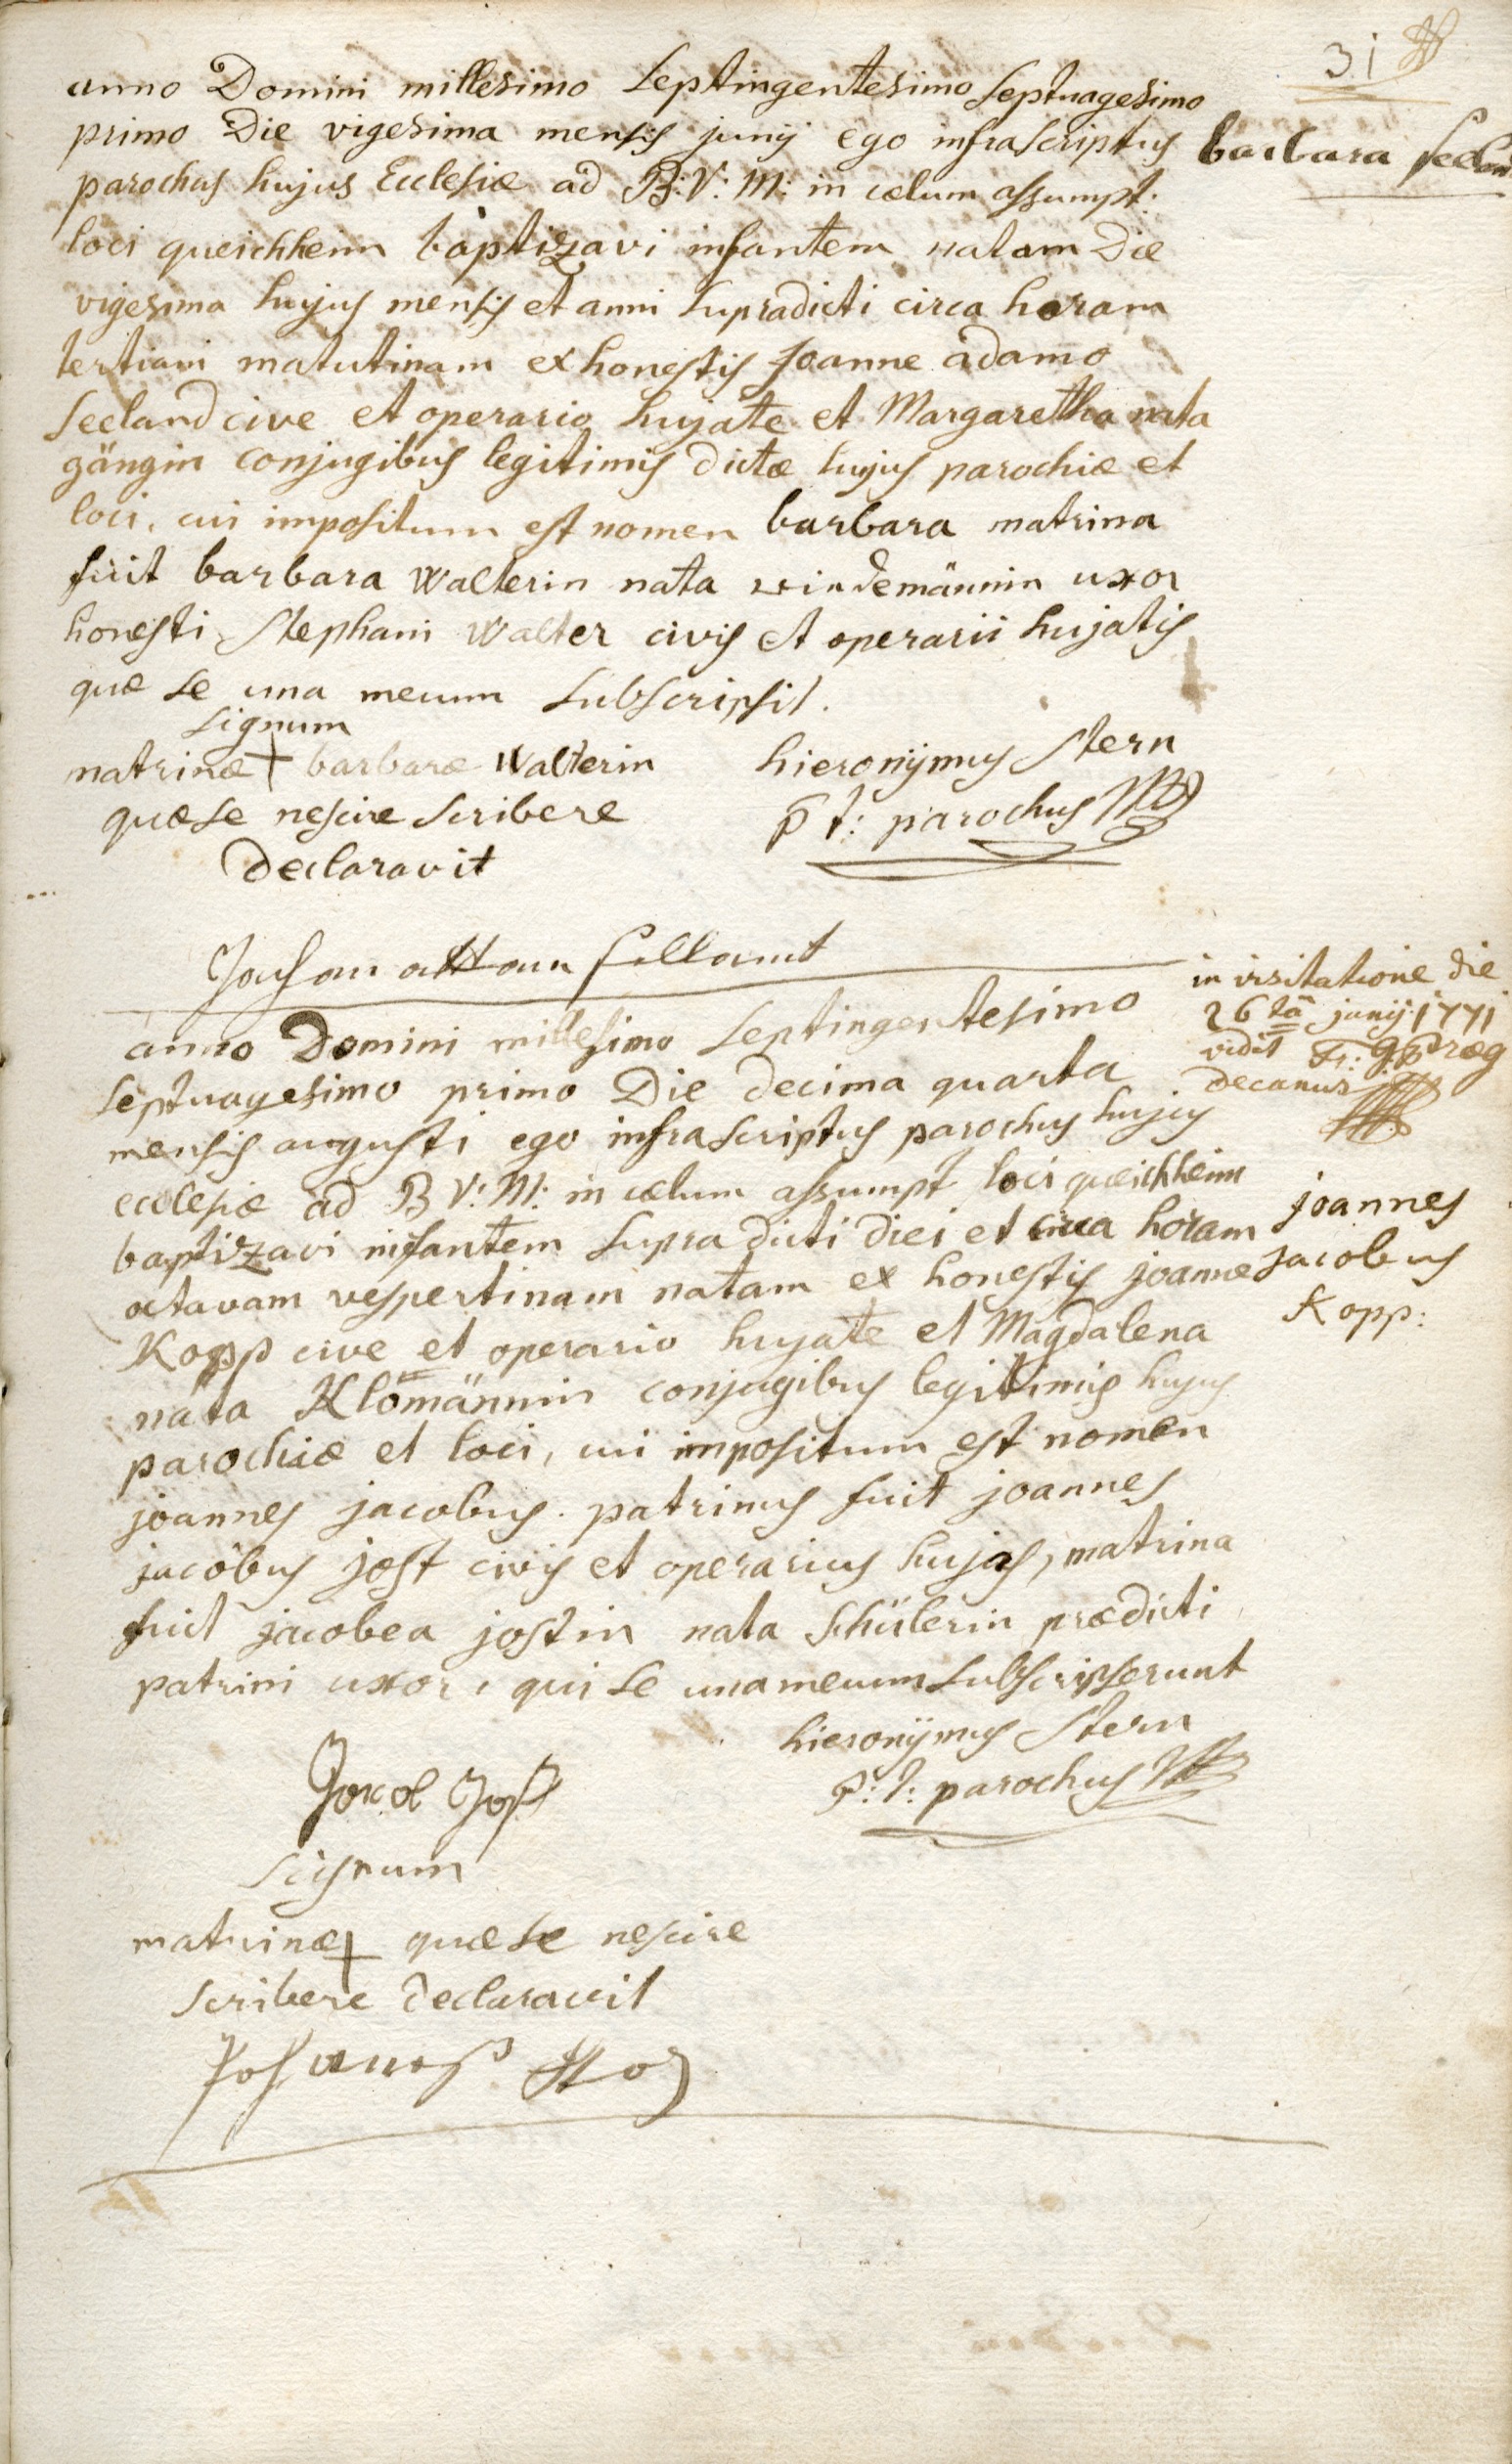 31
anno Domini millesimo septingentesimo septuagesimo
primo Die vigesima mensis junij ego infrascriptus
parochus hujus Ecclesiæ ad B: V: M: in cælum assumpt:
loci queichheim baptizavi infantem natam Die
vigesima hujus mensis et anni supradicti circa horam
tertiam matutinam ex honestis Joanne adamo
seeland cive et operario hujate et Margaretha nata
gängin conjugibus legitimis dictæ hujus parochiæ et
loci, cui impositum est nomen barbara matrina
fuit barbara Walterin nata windemännin uxor
honesti Stephani Walter civis et operarii hujatis
quæ se una mecum subscripsit.
barbara
signum
matrinæ + barbaræ Walterin
quæ se nescire scribere
declaravit
hieronÿmus Stern
p t: parochus
in visitatione die
26 tâ junij 1771
vidit
decanus
anno Domini millesimo septingentesimo
septuagesimo primo Die decima quarta
mensis augusti ego infrascriptus parochus hujus
ecclesiæ ad B V: M: in cælum assumpt loci queichheim
baptizavi infantem supra dicti diei et circa horam
octavam vespertinam natam ex honestis joanne
Kopp cive et operario hujate et Magdalena
nata Klomännin conjugibus legitimis hujus
parochiæ et loci, cui impositum est nomen
joannes jacobus. patrinus fuit joannes
jacobus jost civis et operarius hujas, matrina
fuit jacobea jostin nata schülerin prædicti
patrini uxor, qui se una mecum subscripserunt
joannes
jacobus
Kopp:
hieronÿmus Stern
p: t: parochus
Jacob Jost
signum
matrinæ + quæ se nescire
scribere declaravit